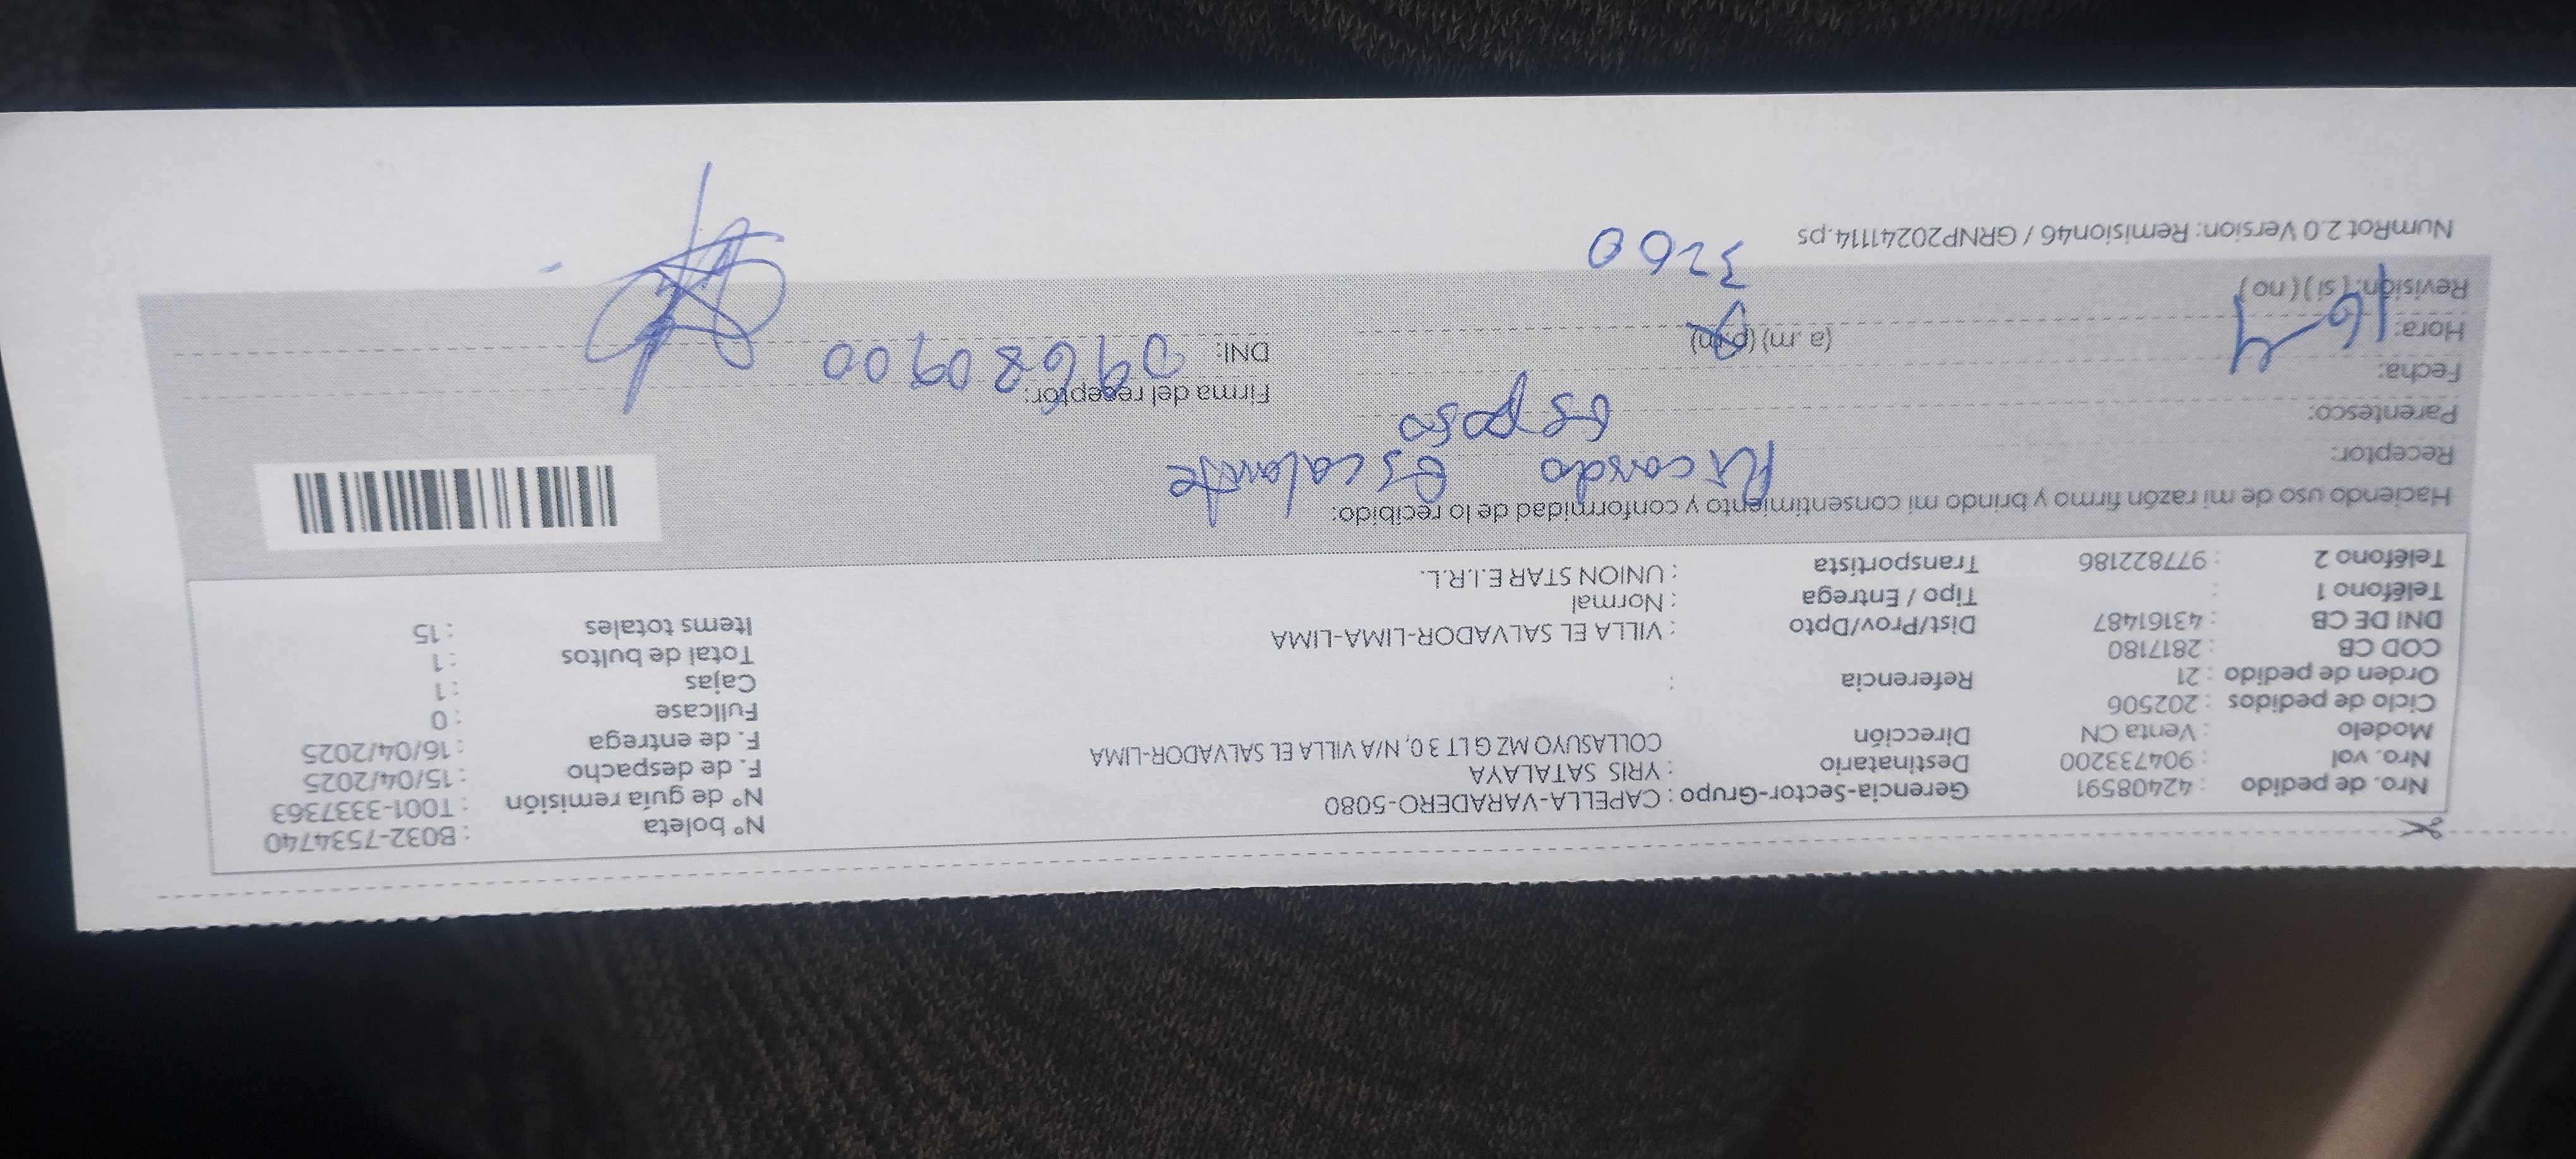 Nro. de pedido : 42408591 Gerencia-Sector-Grupo : CAPELLA-VARADERO-5080 N° boleta : B032-7534740
Nro. vol : 904733200 Destinatario : YRIS SATALAYA N° de guía remisión : T001-3337363
Modelo : Venta CN Dirección COLLASUYO MZ G LT 3 0, N/A VILLA EL SALVADOR-LIMA F. de despacho : 15/04/2025
Ciclo de pedidos : 202506 F. de entrega : 16/04/2025
Orden de pedido : 21 Referencia : Fullcase : 0
COD CB : 2817180 Cajas : 1
DNI DE CB : 43161487 Dist/Prov/Dpto : VILLA EL SALVADOR-LIMA-LIMA Total de bultos : 1
Teléfono 1 : Tipo / Entrega : Normal Items totales : 15
Teléfono 2 : 977822186 Transportista : UNION STAR E.I.R.L.
Haciendo uso de mi razón firmo y brindo mi consentimiento y conformidad de lo recibido:
Receptor: Ricardo Escalante
Parentesco: esposo
Fecha: 16-4 Firma del receptor:
Hora: (a .m) (p.m) DNI: 09680900
Revisión: ( sí ) ( no )
3260
NumRot 2.0 Version: Remision46 / GRNP20241114.ps